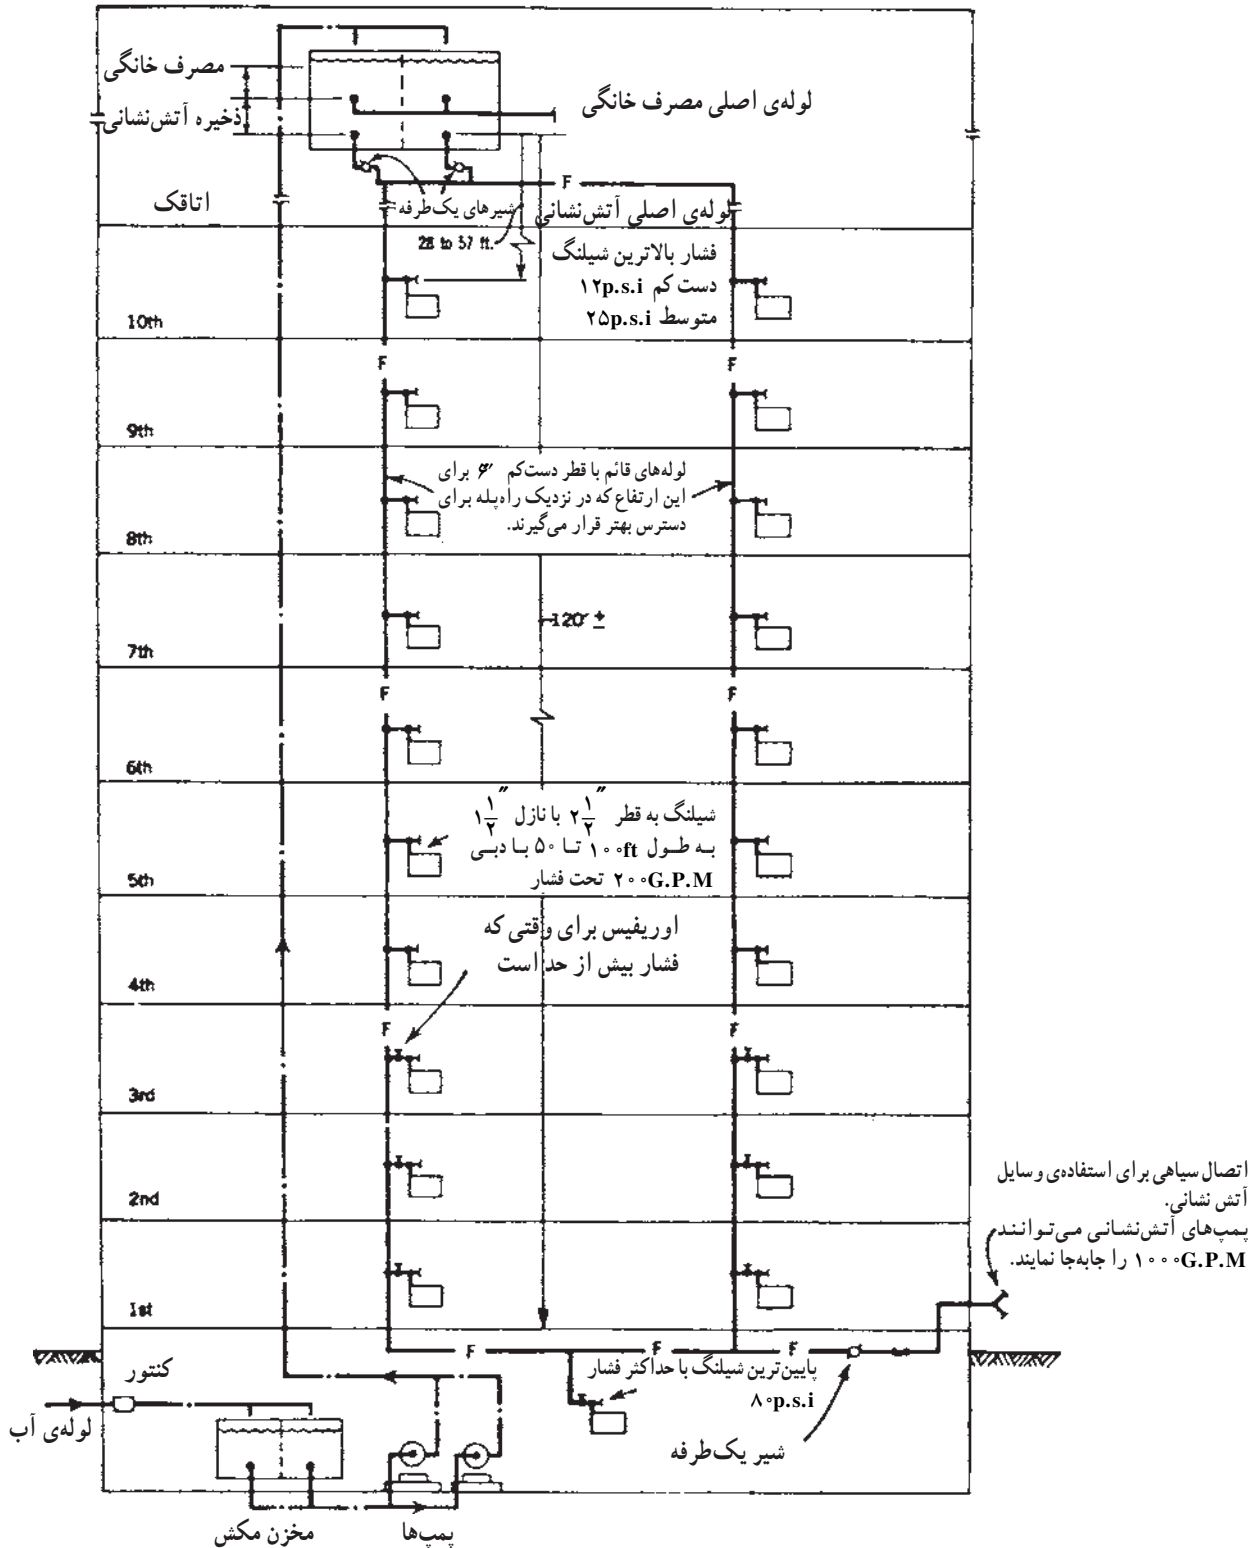 مصرف خانگی
ذخیره آتش‌نشانی
لوله‌ی اصلی مصرف خانگی
اتاقک
شیرهای یک‌طرفه
لوله‌ی اصلی آتش‌نشانی
F
28 to 57 ft.
فشار بالاترین شیلنگ
دست کم ۱۲p.s.i
متوسط ۲۵p.s.i
10th
F
F
9th
لوله‌های قائم با قطر دست‌کم ۶″ برای
این ارتفاع که در نزدیک راه‌پله برای
دسترس بهتر قرار می‌گیرند.
8th
120' ±
7th
F
F
6th
شیلنگ به قطر ۲ ۱/۲″ با نازل ۱ ۱/۲″
به طول ۱۰۰ft تا ۵۰ با دبی
۲۰۰G.P.M تحت فشار
5th
اوریفیس برای وقتی که
فشار بیش از حد است
4th
F
F
3rd
2nd
1st
اتصال سیاهی برای استفاده‌ی وسایل
آتش نشانی.
پمپ‌های آتش‌نشانی می‌توانند
۱۰۰۰G.P.M را جابه‌جا نمایند.
F
F
F
پایین‌ترین شیلنگ با حداکثر فشار
۸۰p.s.i
شیر یک‌طرفه
کنتور
لوله‌ی آب
مخزن مکش
پمپ‌ها